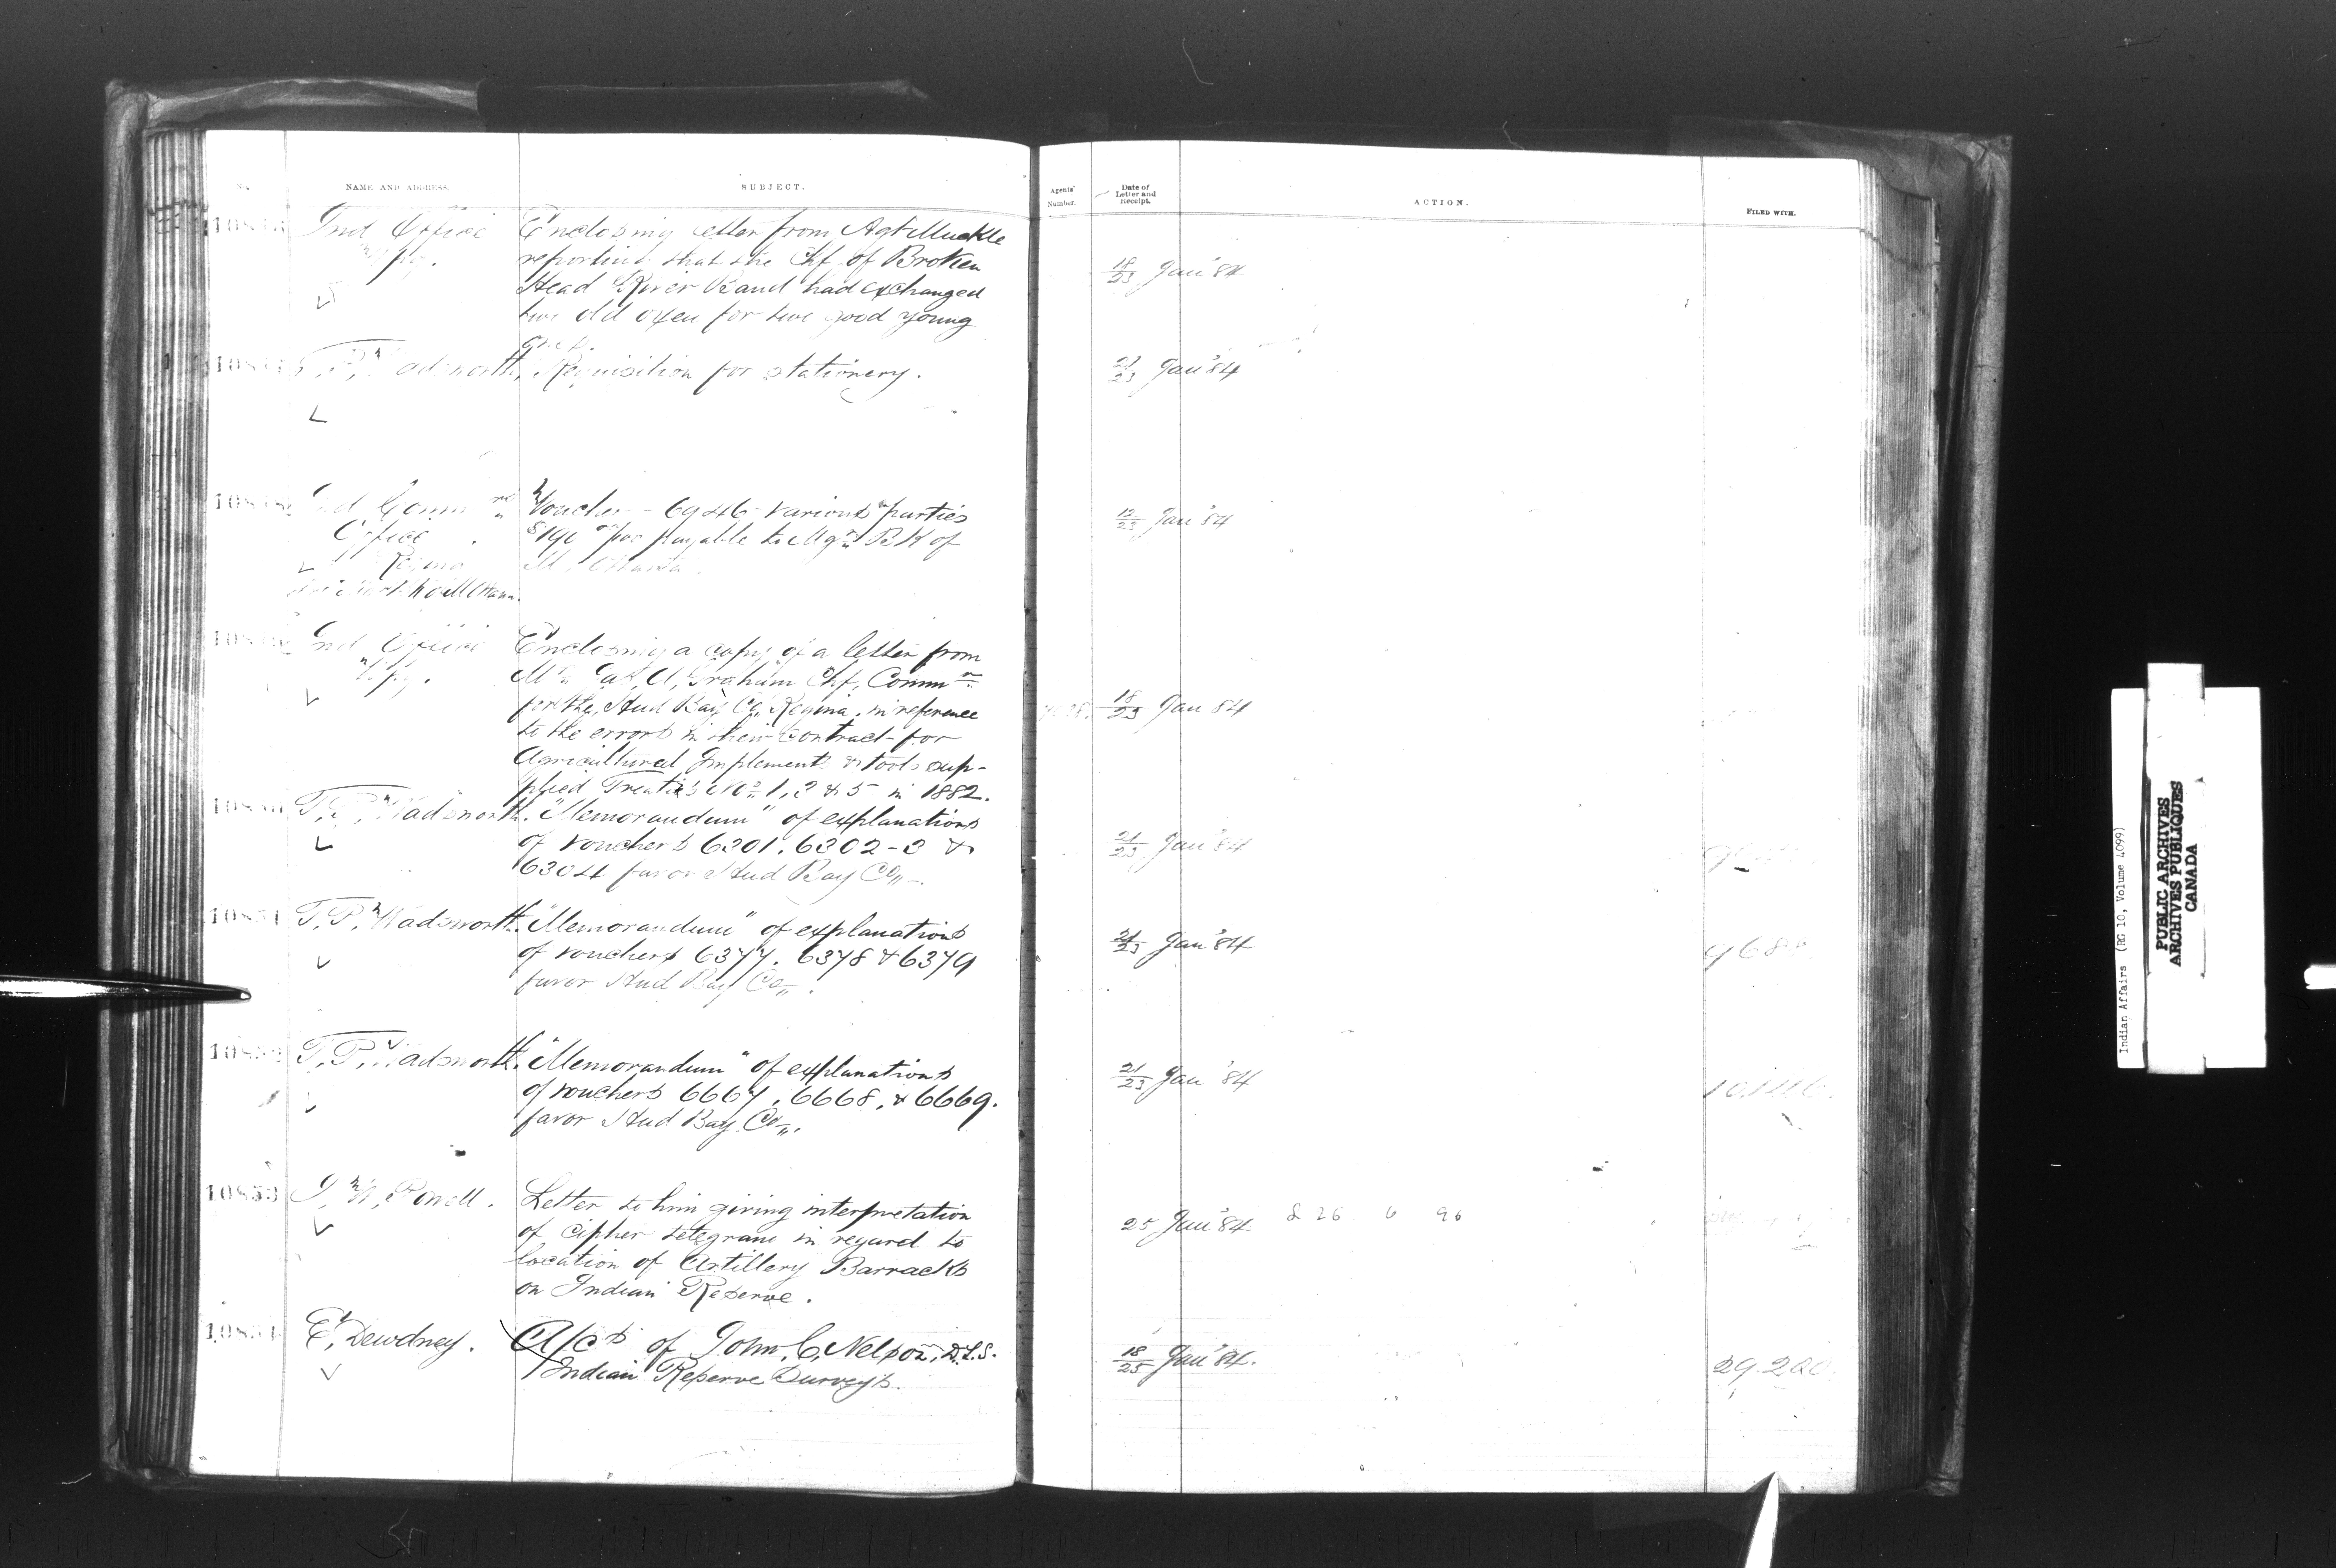 NAME AND ADDRESS.
SUBJECT.
Agents' Number.
Date of Letter and Receipt.
ACTION.
FILED WITH.
Ind Office
Enclosing letter from Agt Muckle
reporting that the Chf. of Broken
Head River Band had exchanged
two old oxen for two good young
ones.
18/23 Jan '84
T. P. Wadsworth,
Requisition for stationery.
21/23 Jan '84
Office
Regina
Voucher - 6946 - various parties
payable to Mgr. BK of
M. Ottawa.
12/23 Jan '84
Ind Office
Wpg.
Enclosing a copy of a letter from
Mr. Jas. A. Graham Chf. Commr.
for the Hud Bay Co. Regina. in reference
to the errors in their contract for
Agricultural Implements & tools sup-
plied Treaties Nos. 1, 2 & 5 in 1882.
18/23 Jan 84
T. P. Wadsworth.
"Memorandum" of explanations
of vouchers 6301. 6302-3 &
6304 favor Hud Bay Co.
21/23 Jan '84
10851
T. P. Wadsworth.
"Memorandum" of explanations
of vouchers 6377. 6378 & 6379
favor Hud Bay Co.
21/23 Jan '84
10852
T. P. Wadsworth.
"Memorandum" of explanations
of vouchers 6667, 6668, & 6669.
favor Hud Bay Co.
21/23 Jan '84
10853
I. W. Powell.
Letter to him giving interpretation
of cipher telegram in regard to
location of Artillery Barracks
on Indian Reserve.
25 Jan '84
10854
E. Dewdney.
A/cs of John C. Nelson, D.L.S.
Indian Reserve Surveys.
18/25 Jan '84.
Indian Affairs (RG 10, Volume 4099)
PUBLIC ARCHIVES
ARCHIVES PUBLIQUES
CANADA